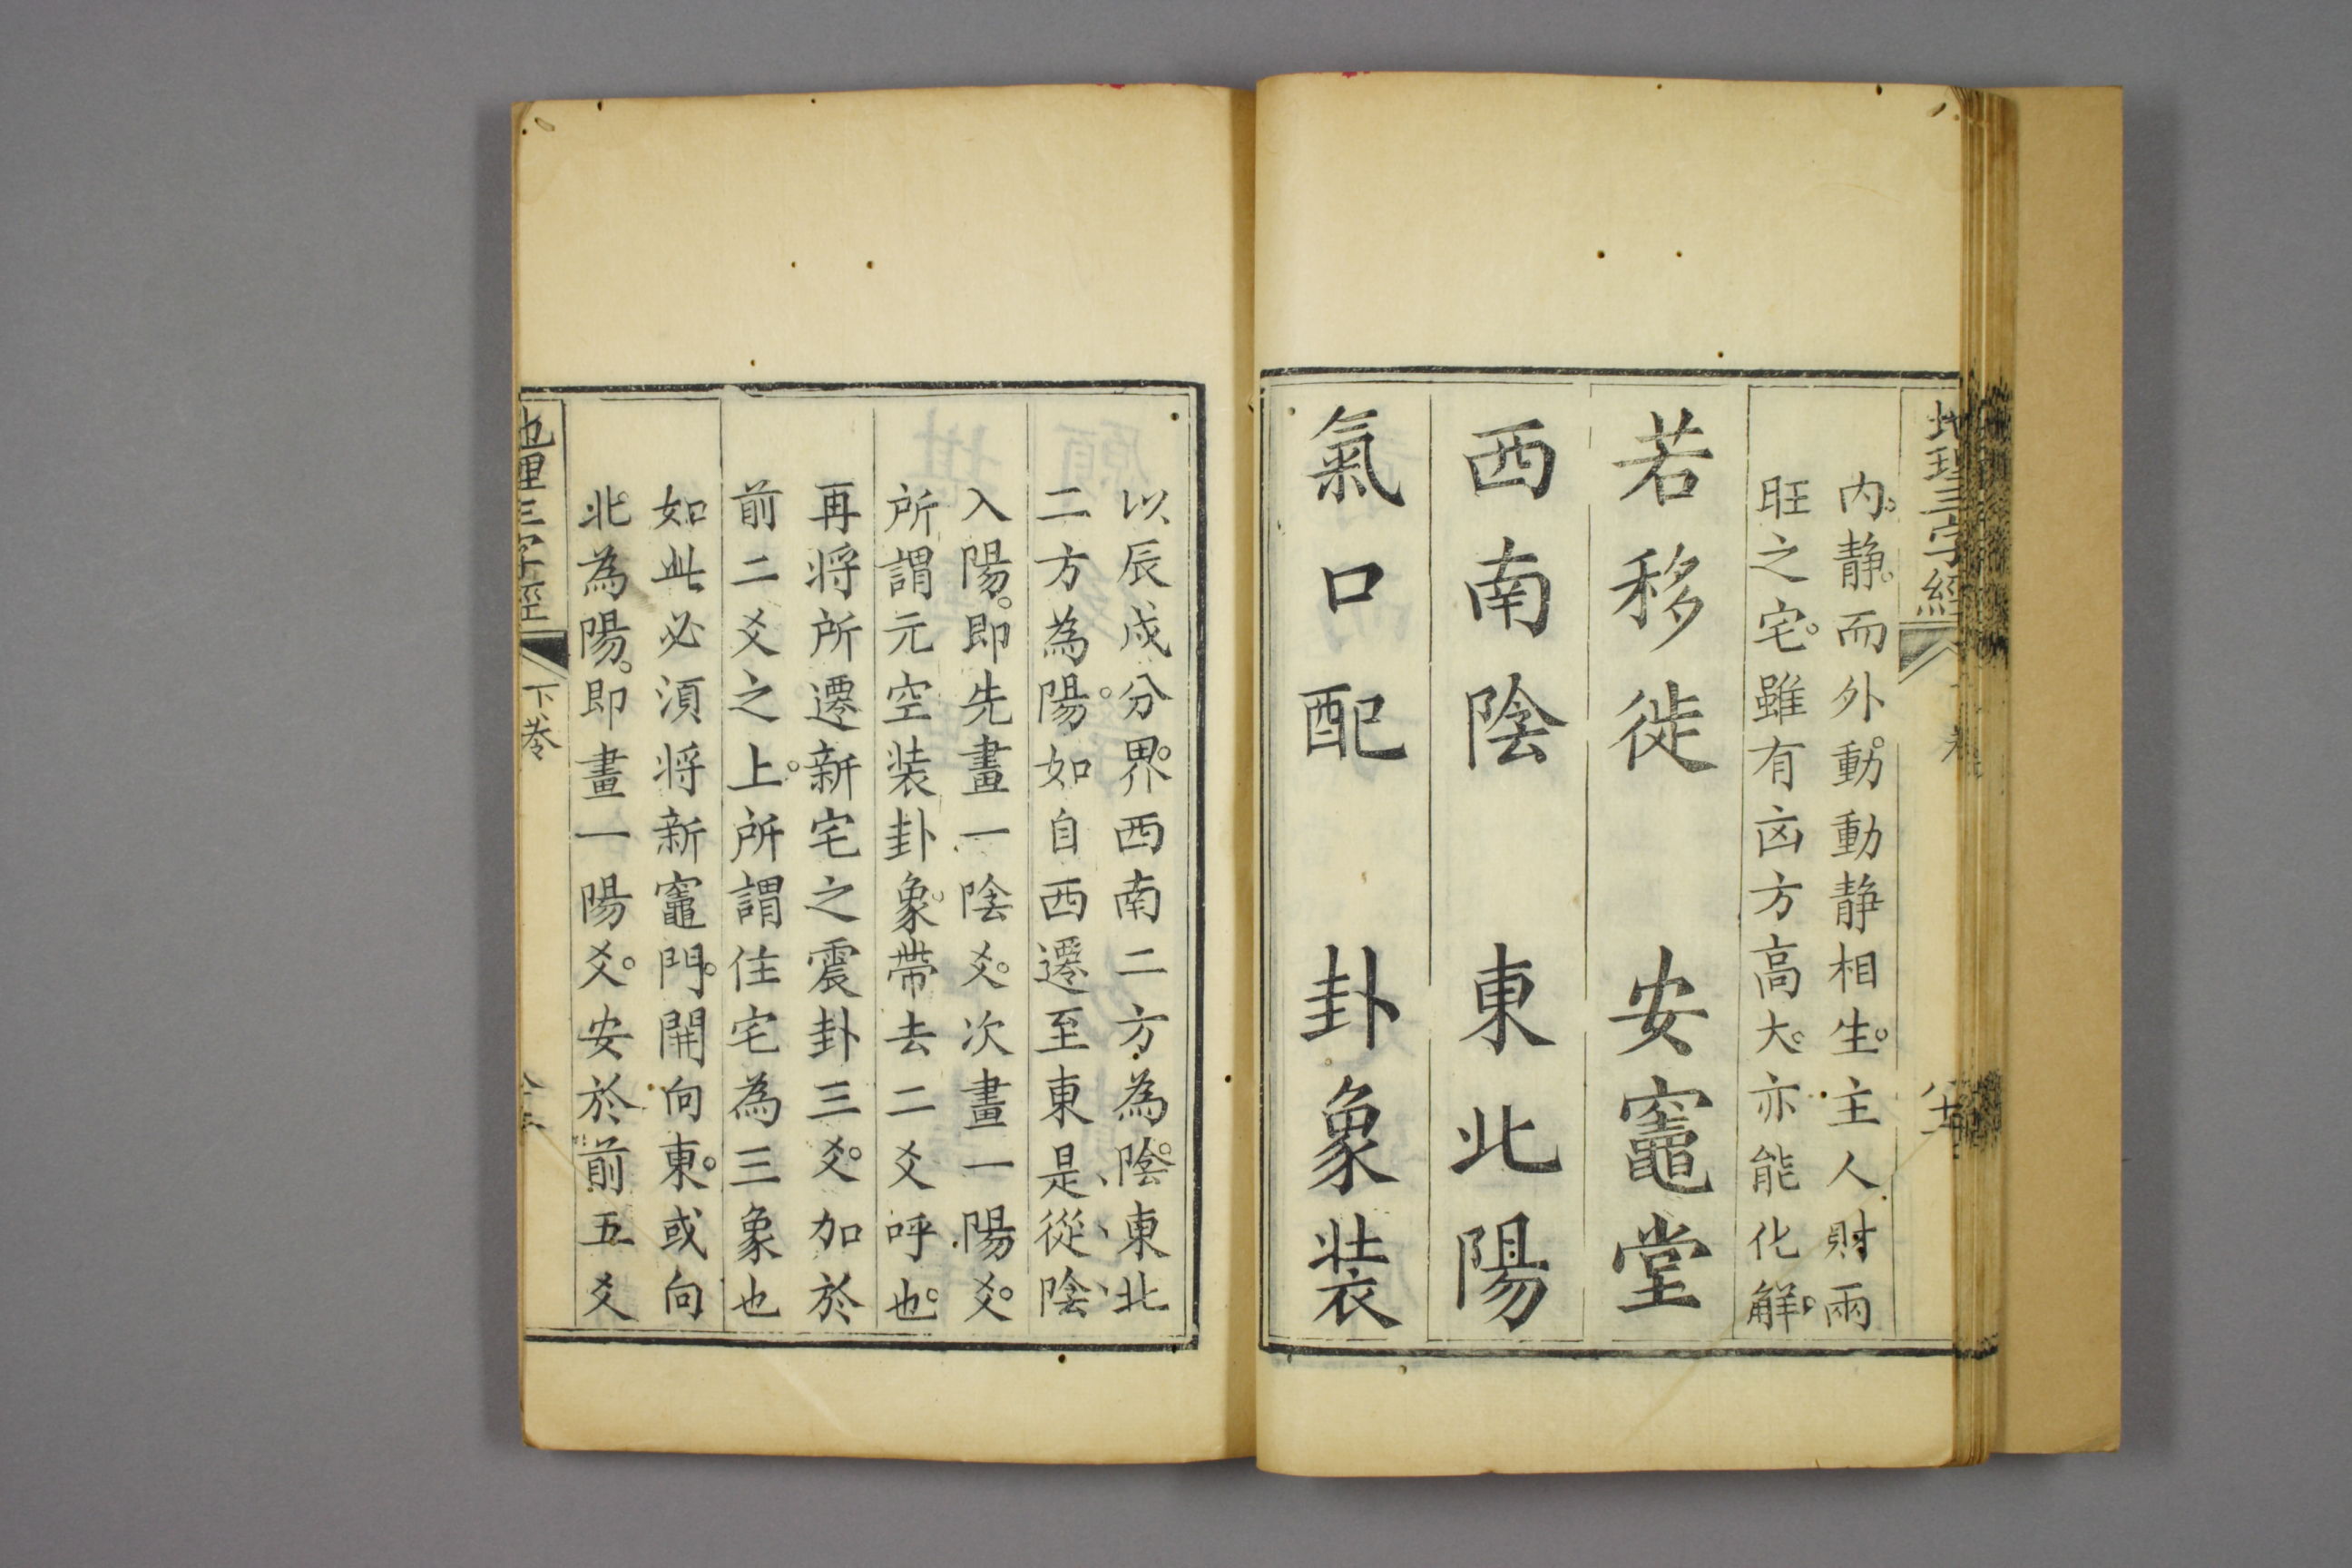 地理三字經
内。静。而外。動動静相生。主人財兩
旺之宅。雖有凶方高大。亦能化解。
若移徙 安竈堂
西南陰 東北陽
氣口配 卦象裝
以辰戌分界。西南二方為陰。東北
二方為陽。如自西遷至東是從陰
入陽。即先畫一陰爻。次畫一陽爻。
所謂元空装卦象。帶去二爻呼也。
再将所遷新宅之震卦三爻。加於
前二爻之上。所謂住宅為三象也
如此必湏将新竈門。開向東。或向
北為陽。即畫一陽爻。安於前五爻
地理三字經 下巻